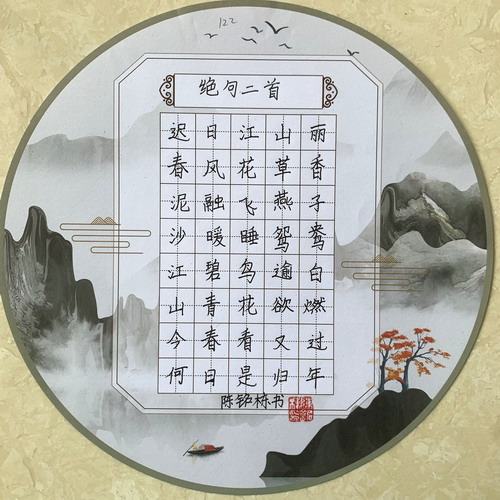 122
绝句二首
迟日江山丽
春风花草香
泥融飞燕子
沙暖睡鸳鸯
江碧鸟逾白
山青花欲燃
今春看又过
何日是归年
陈栋书